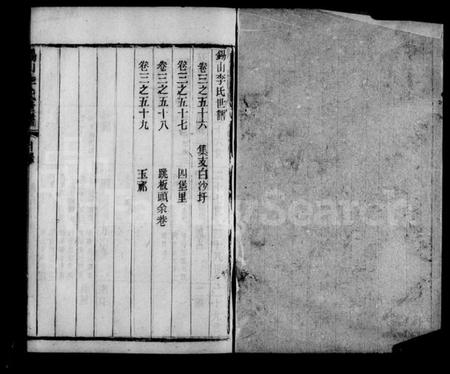 錫山李氏世譜
卷三之五十六 集支白沙圩
卷三之五十七 四堡里
卷三之五十八 跳板頭余巷
卷三之五十九 玉祁